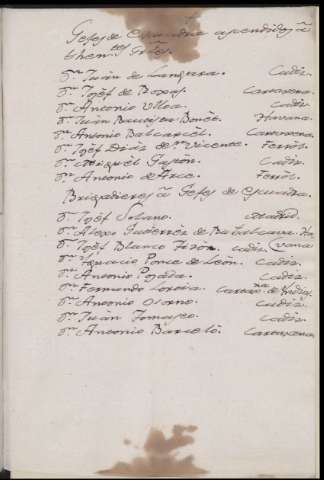 Gefes de Esquadra ascendidos â
then.tes Grãles.
Dn. Juan de Langara. Cadiz.
Dn. Josef de Roxas. Cartaxena.
Dn. Antonio Ulloa. Cadiz.
Dn. Juan Bauptta Bonet. Havana.
Dn. Antonio Balcarcèl. Cartaxena.
Dn. Josef Diaz de Sn. Vicente. Ferrol.
Dn. Miguèl Gastòn. Cadiz.
Dn. Antonio de Arce. Ferrol.
Brigadieres â Gefes de Esquadra.
Dn. Josef Solano. Madrid.
Dn. Alexo Gutierrez de Rubalcava. Ha
Dn. Josef Blanco Fizòn. Cadiz vana
Dn. Ignacio Ponce de Leòn. Cadiz.
Dn. Antonio Posada. Cadiz.
Dn. Fernando Loreia. Cartaxna. de Yndias.
Dn. Antonio Osorno. Cadiz.
Dn. Juan Tomaseo. Cadiz.
Dn. Antonio Barcelò. Cartaxena.